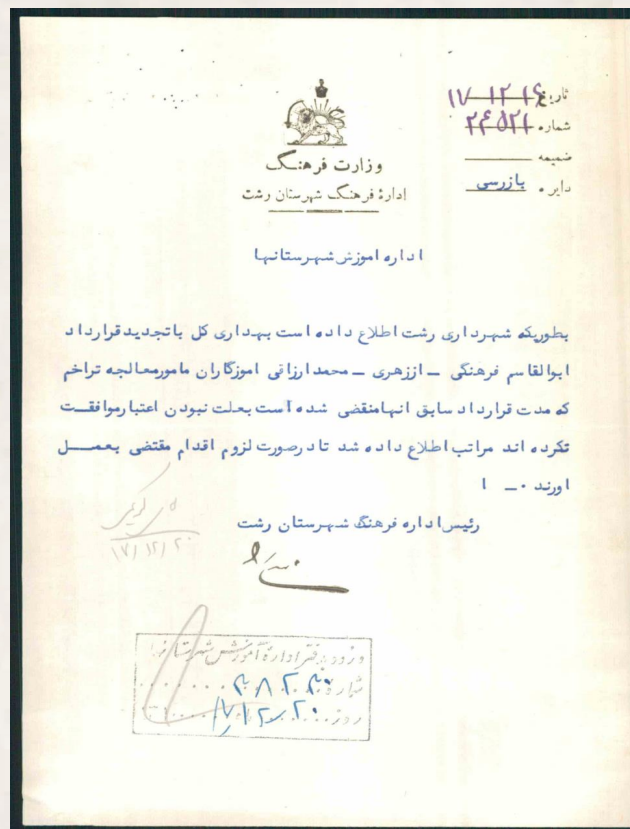 تاریخ ۱۷-۱۲-۱۶
شماره ۲۴۵۲۱
ضمیمه
دایره بازرسی
وزارت فرهنگ
ادارهٔ فرهنگ شهرستان رشت
اداره اموزش شهرستانها
بطوریکه شهرداری رشت اطلاع داده است بهداری کل باتجدید قرارداد
ابوالقاسم فرهنگی ـ اززهری ـ محمد ارزانی اموزگاران مامورمعالجه تراخم
که مدت قرارداد سابق انهامنقضی شده است بعلت نبودن اعتبارموافقت
نکرده اند مراتب اطلاع داده شد تادرصورت لزوم اقدام مقتضی بعمل
اورند ۰ـ ا
رئیس اداره فرهنگ شهرستان رشت
۱۷/۱۲/۲۰
ورود بدفتر ادارهٔ آموزش شهرستانها
شماره ۳۸۲۰۳
روز ۱۷/۱۲/۲۰